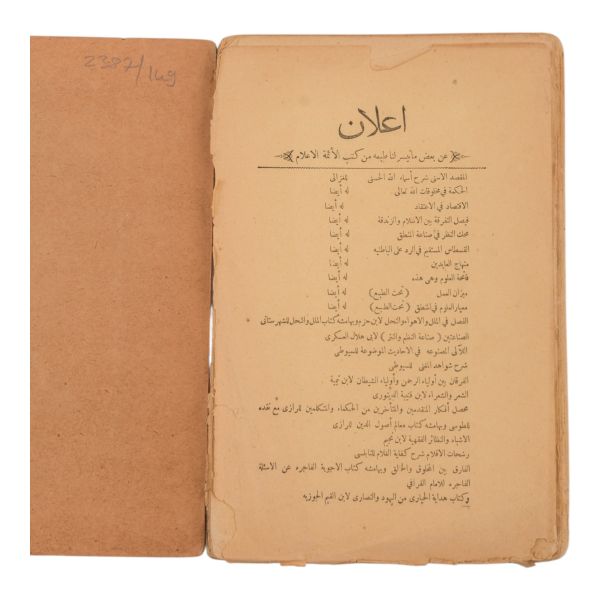 2387/149
اعلان
عن بعض ما تيسر لنا طبعه من كتب الأئمة الاعلام
المقصد الاسنى شرح أسماء الله الحسنى للغزالى
الحكمة في مخلوقات الله تعالى له أيضا
الاقتصاد في الاعتقاد له أيضا
فيصل التفرقة بين الاسلام والزندقة له أيضا
محك النظر في صناعة المنطق له أيضا
القسطاس المستقيم في الرد على الباطنية له أيضا
منهاج العابدين له أيضا
فاتحة العلوم وهى هذه له أيضا
ميزان العمل (تحت الطبع) له أيضا
معيار العلوم في المنطق (تحت الطبع) له أيضا
الفصل في الملل والاهواء والنحل لابن حزم وبهامشه كتاب الملل والنحل للشهرستانى
الصناعتين (صناعة النظم والنثر) لابى هلال العسكرى
اللآلى المصنوعه في الاحاديث الموضوعة للسيوطى
شرح شواهد المغنى للسيوطى
الفرقان بين أولياء الرحمن وأولياء الشيطان لابن تيمية
الشعر والشعراء لابن قتيبة الدينورى
محصل أفكار المتقدمين والمتأخرين من الحكماء والمتكلمين للرازى مع نقده
للطوسى وبهامشه كتاب معالم أصول الدين للرازى
الاشباه والنظائر الفقهية لابن نجيم
رشحات الاقلام شرح كفاية الغلام للنابلسى
الفارق بين المخلوق والخالق وبهامشه كتاب الاجوبة الفاخره عن الاسئلة
الفاجره للامام القرافي
وكتاب هداية الحيارى من اليهود والنصارى لابن القيم الجوزيه